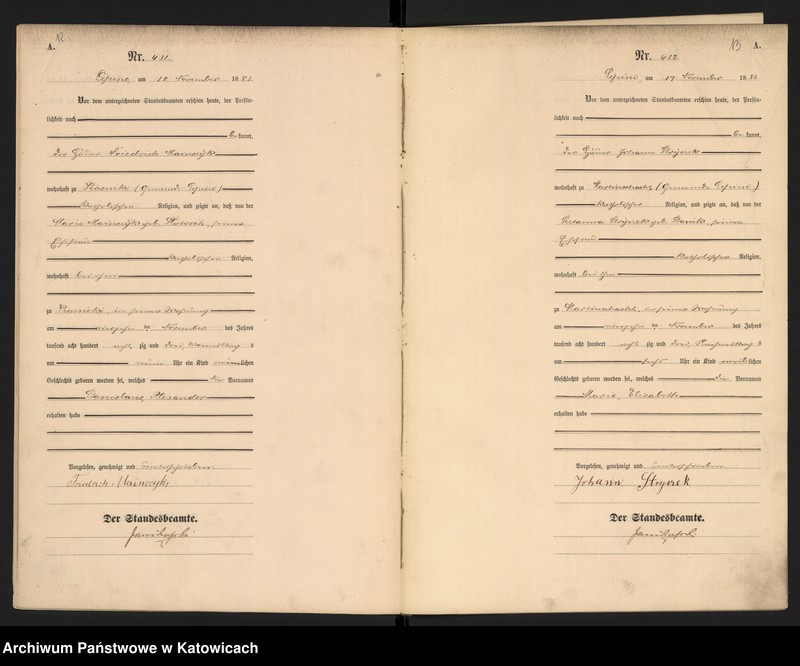 12
A.
Nr. 431
am 18 November 1883
Vor dem unterzeichneten Standesbeamten erschien heute, der Persön-
lichkeit nach
be kannt,
der Häuer Friedrich
wohnhaft zu (Gemeinde Lipine)
katholischer Religion, und zeigte an, daß von der
Marie geb. seiner
Ehefrau
katholischer Religion,
wohnhaft bei ihm
zu in seiner Wohnung
am ten November des Jahres
tausend acht hundert acht zig und drei, Vormittags
um neun Uhr ein Kind männlichen
Geschlechts geboren worden sei, welches die Vornamen
Alexander
erhalten habe
Vorgelesen, genehmigt und unterschrieben
Friedrich
Der Standesbeamte.
13 A.
Nr. 432
Lipine, am 19 November 1883
Vor dem unterzeichneten Standesbeamten erschien heute, der Persön-
lichkeit nach
be kannt,
der Häuer Johann
wohnhaft zu (Gemeinde Lipine)
katholischer Religion, und zeigte an, daß von der
Susanna geb. seiner
Ehefrau
katholischer Religion,
wohnhaft bei ihm
zu in seiner Wohnung
am ten November des Jahres
tausend acht hundert acht zig und drei, Nachmittags
um sechs Uhr ein Kind weiblichen
Geschlechts geboren worden sei, welches die Vornamen
Marie, Elisabeth
erhalten habe
Vorgelesen, genehmigt und unterschrieben
Johann
Der Standesbeamte.
Archiwum Państwowe w Katowicach